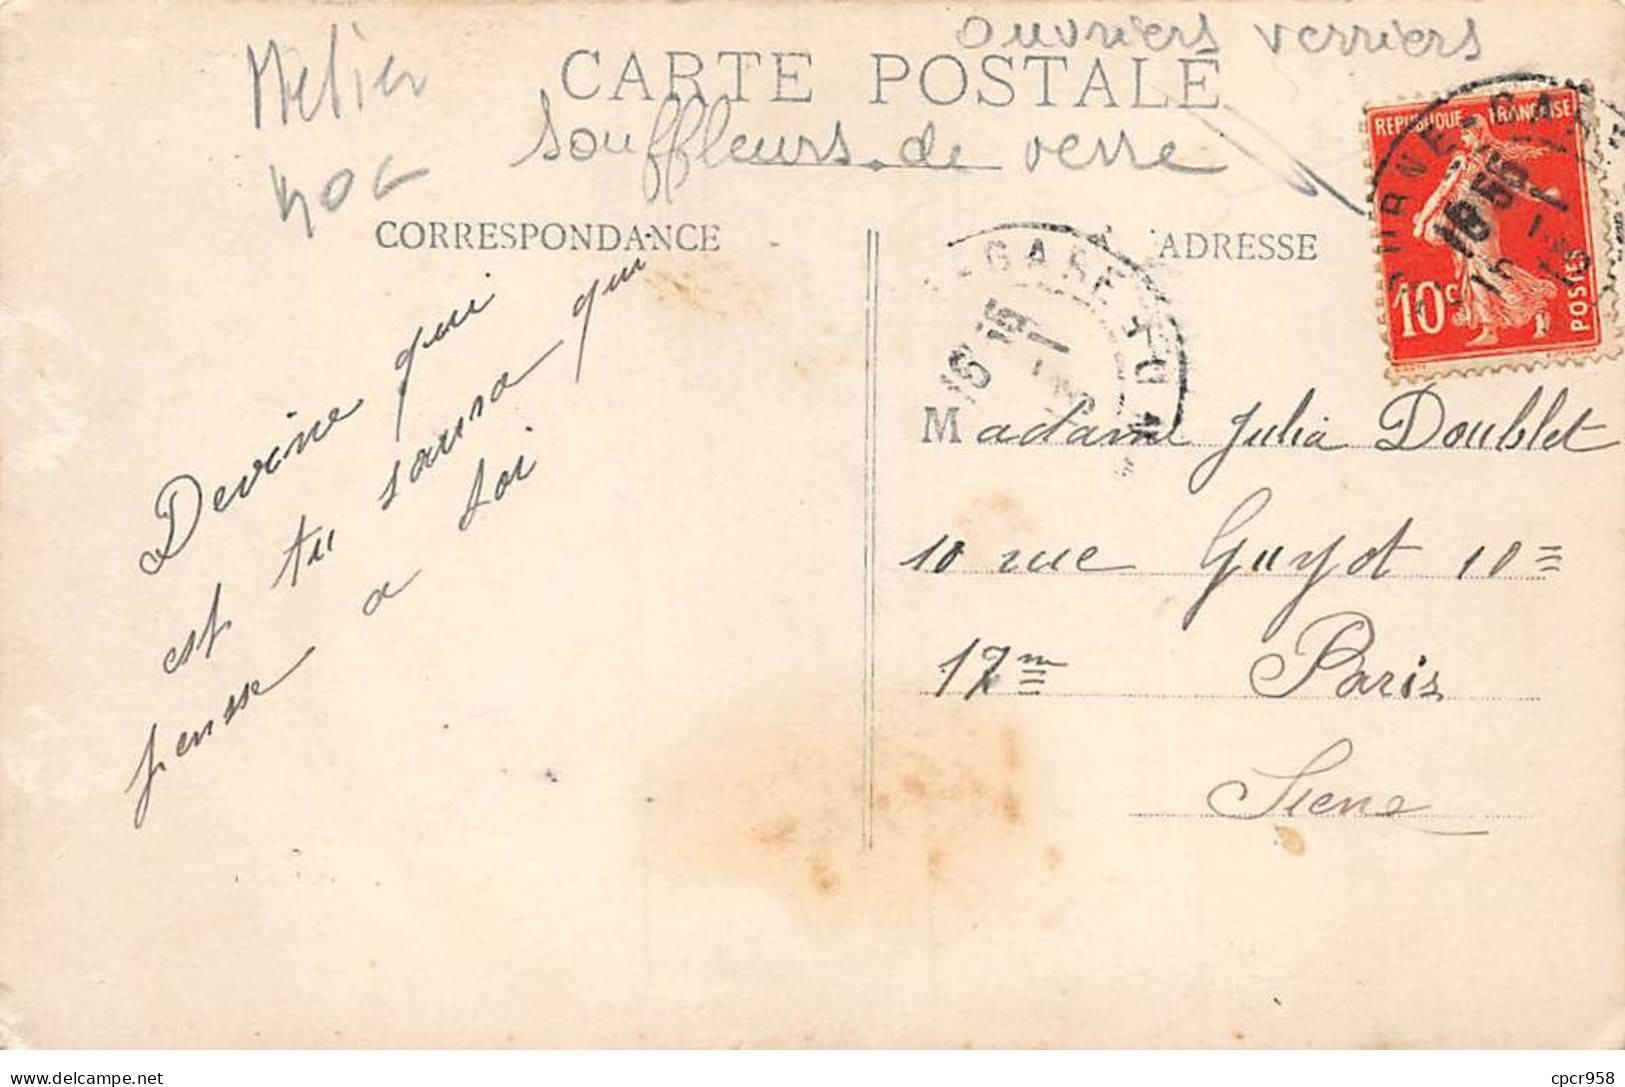 ouvriers verriers
Metier
CARTE POSTALE
souffleurs de verre
CORRESPONDANCE
ADRESSE
REPUBLIQUE FRANÇAISE
10c
POSTES
Devine qui
est tu saura qui
pensse a toi
Madame Julia Doublet
10 rue Guyot 10
17m Paris
Siene
delcampe.net
cpcr958